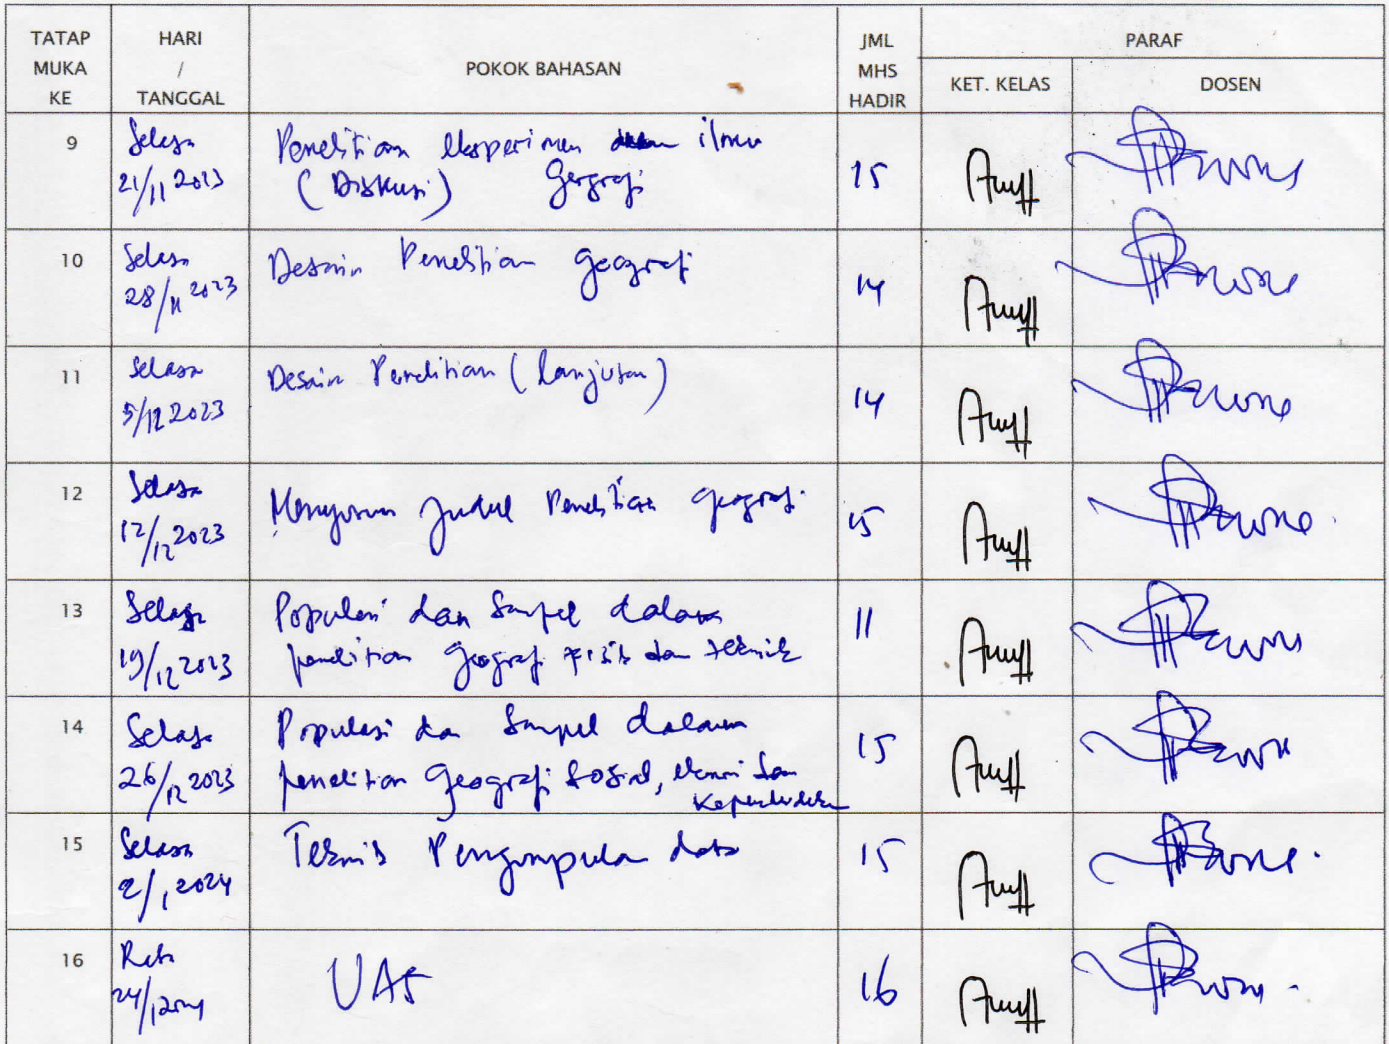 TATAP MUKA KE
HARI / TANGGAL
POKOK BAHASAN
JML MHS HADIR
PARAF
KET. KELAS
DOSEN
9
Selasa
21/11 2023
Penelitian eksperimen dalam ilmu
(Diskusi) Geografi
15
10
Selasa
28/11 2023
Desain Penelitian Geografi
14
11
Selasa
5/12 2023
Desain Penelitian (lanjutan)
14
12
Selasa
12/12 2023
Menyusun Judul Penelitian Geografi
15
13
Selasa
19/12 2023
Populasi dan Sampel dalam
penelitian Geografi Fisik dan teknik
11
14
Selasa
26/12 2023
Populasi dan Sampel dalam
penelitian Geografi Sosial, ekonomi dan
kependudukan
15
15
Selasa
2/1 2024
Teknik Pengumpulan data
15
16
Rabu
24/1 2024
UAS
16